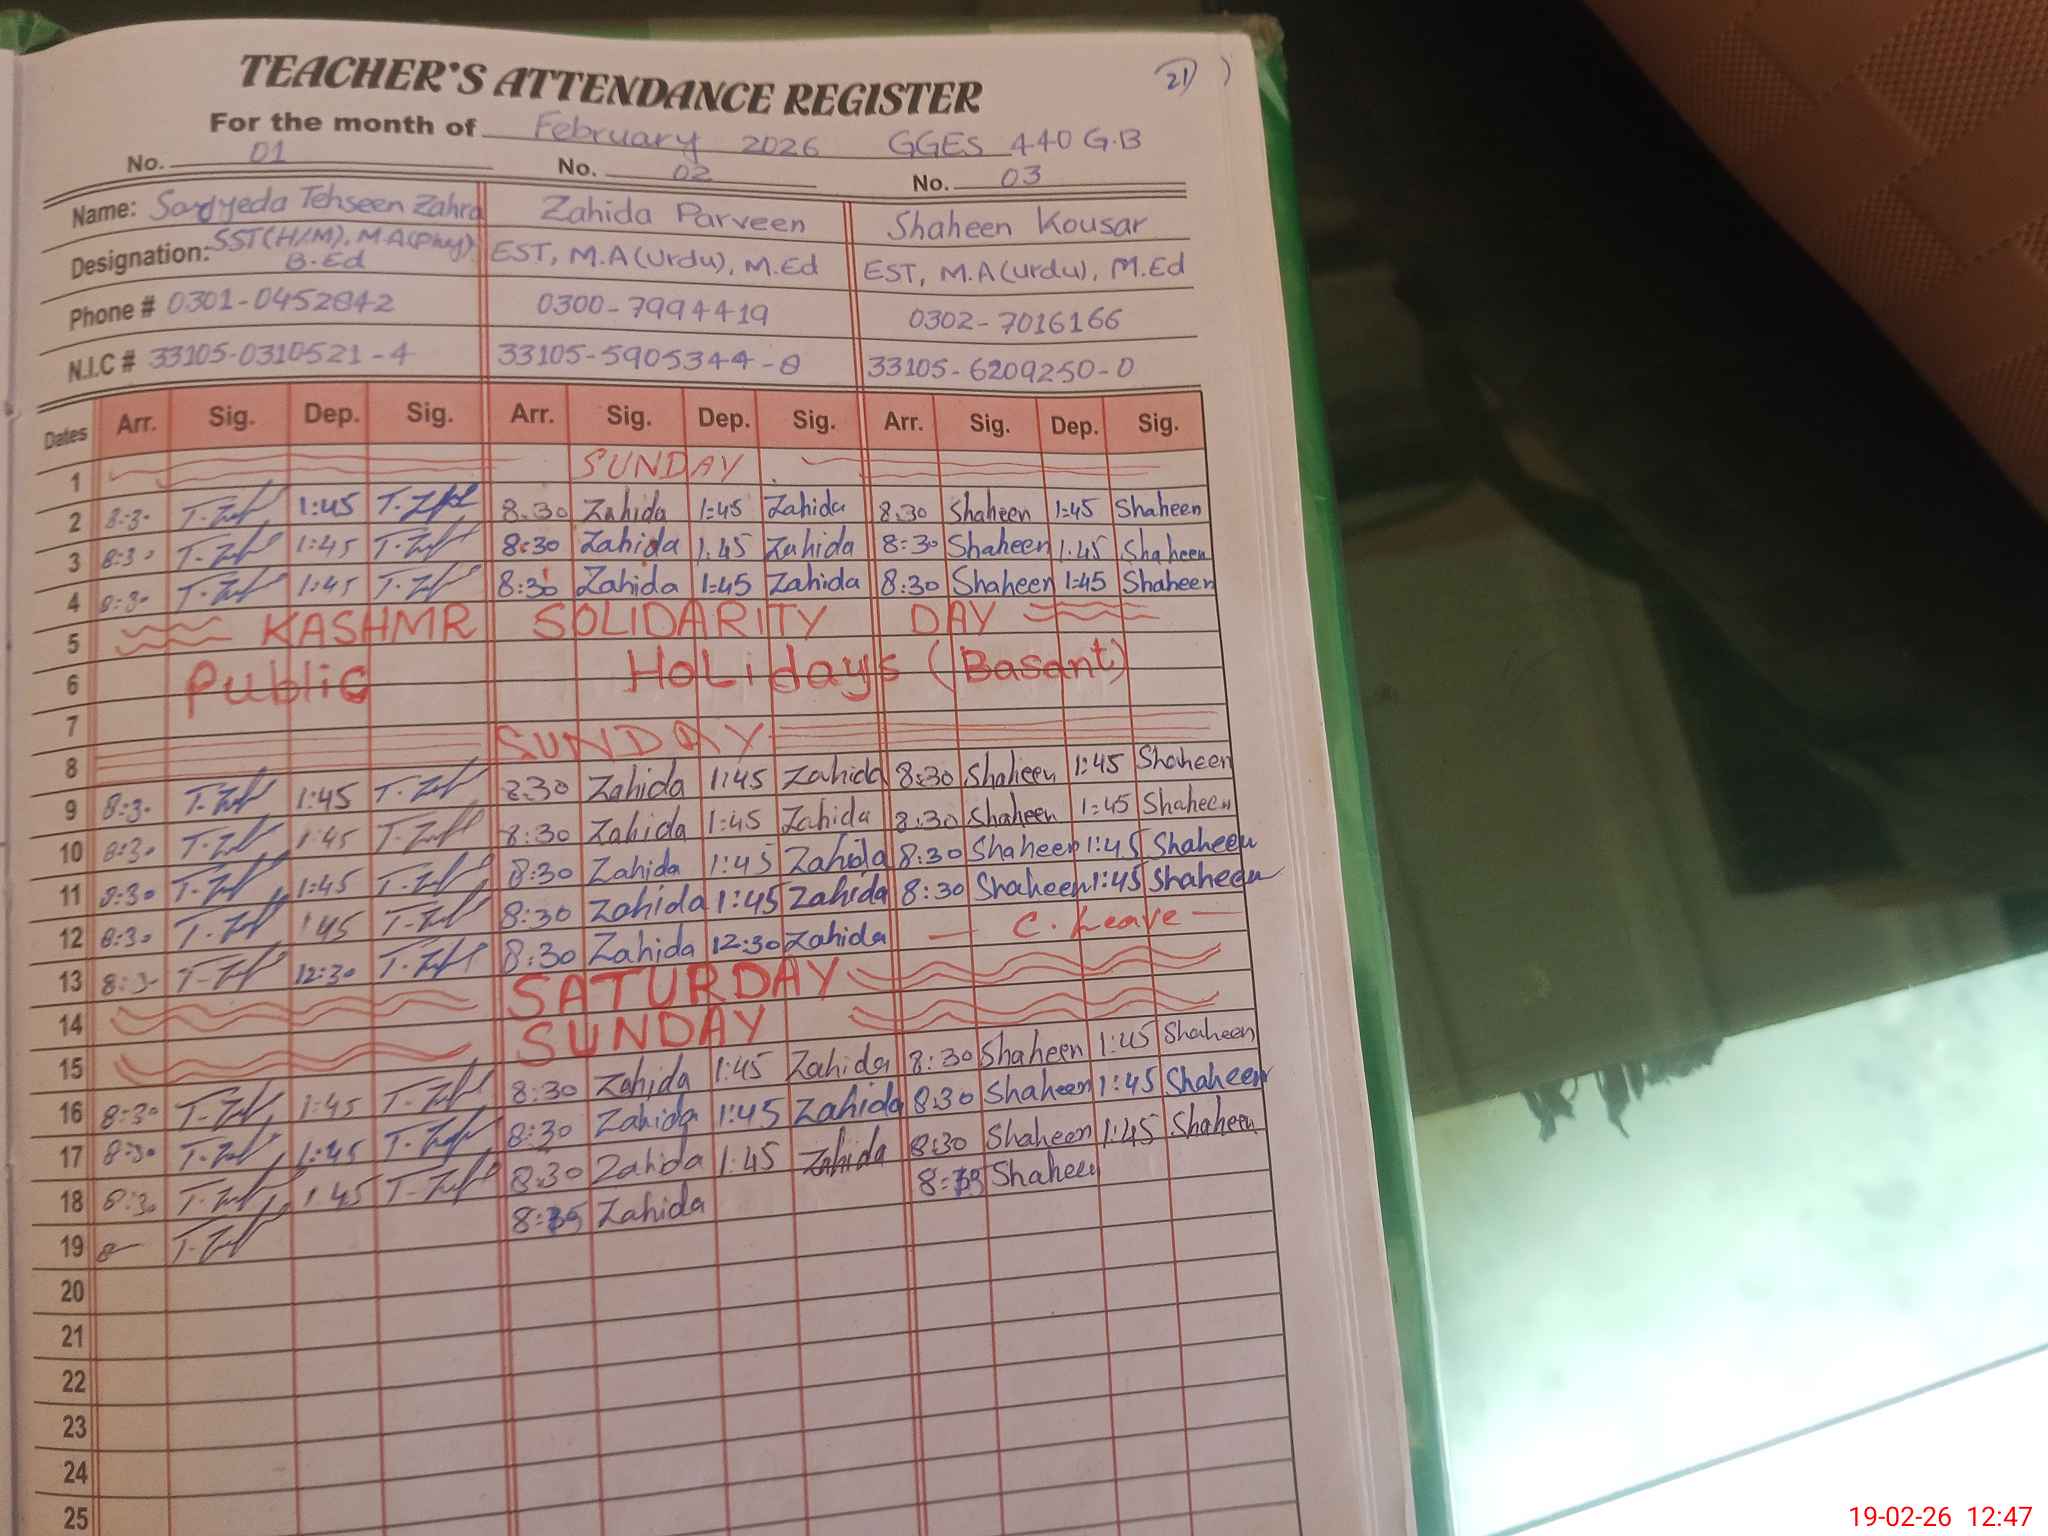 21
TEACHER'S ATTENDANCE REGISTER
For the month of February 2026 GGES 440 G.B
No. 01 No. 02 No. 03
Name: Sayyeda Tehseen Zahra Zahida Parveen Shaheen Kousar
Designation: SST(H/M), M.A(Phy), B.Ed EST, M.A(Urdu), M.Ed EST, M.A(Urdu), M.Ed
Phone # 0301-0452842 0300-7994419 0302-7016166
N.I.C # 33105-0310521-4 33105-5905344-8 33105-6209250-0
Dates Arr. Sig. Dep. Sig. Arr. Sig. Dep. Sig. Arr. Sig. Dep. Sig.
1 SUNDAY
2 8:30 1:45 8:30 Zahida 1:45 Zahida 8:30 Shaheen 1:45 Shaheen
3 8:30 1:45 8:30 Zahida 1:45 Zahida 8:30 Shaheen 1:45 Shaheen
4 8:30 1:45 8:30 Zahida 1:45 Zahida 8:30 Shaheen 1:45 Shaheen
5 KASHMR SOLIDARITY DAY
6 Public Holidays (Basant)
7
8 SUNDAY
9 8:30 1:45 8:30 Zahida 1:45 Zahida 8:30 Shaheen 1:45 Shaheen
10 8:30 1:45 8:30 Zahida 1:45 Zahida 8:30 Shaheen 1:45 Shaheen
11 8:30 1:45 8:30 Zahida 1:45 Zahida 8:30 Shaheen 1:45 Shaheen
12 8:30 1:45 8:30 Zahida 1:45 Zahida 8:30 Shaheen 1:45 Shaheen
13 8:30 12:30 8:30 Zahida 12:30 Zahida — C. Leave —
14 SATURDAY
15 SUNDAY
16 8:30 1:45 8:30 Zahida 1:45 Zahida 8:30 Shaheen 1:45 Shaheen
17 8:30 1:45 8:30 Zahida 1:45 Zahida 8:30 Shaheen 1:45 Shaheen
18 8:30 1:45 8:30 Zahida 1:45 Zahida 8:30 Shaheen 1:45 Shaheen
19 Zahida Shaheen
20
21
22
23
24
25
19-02-26 12:47